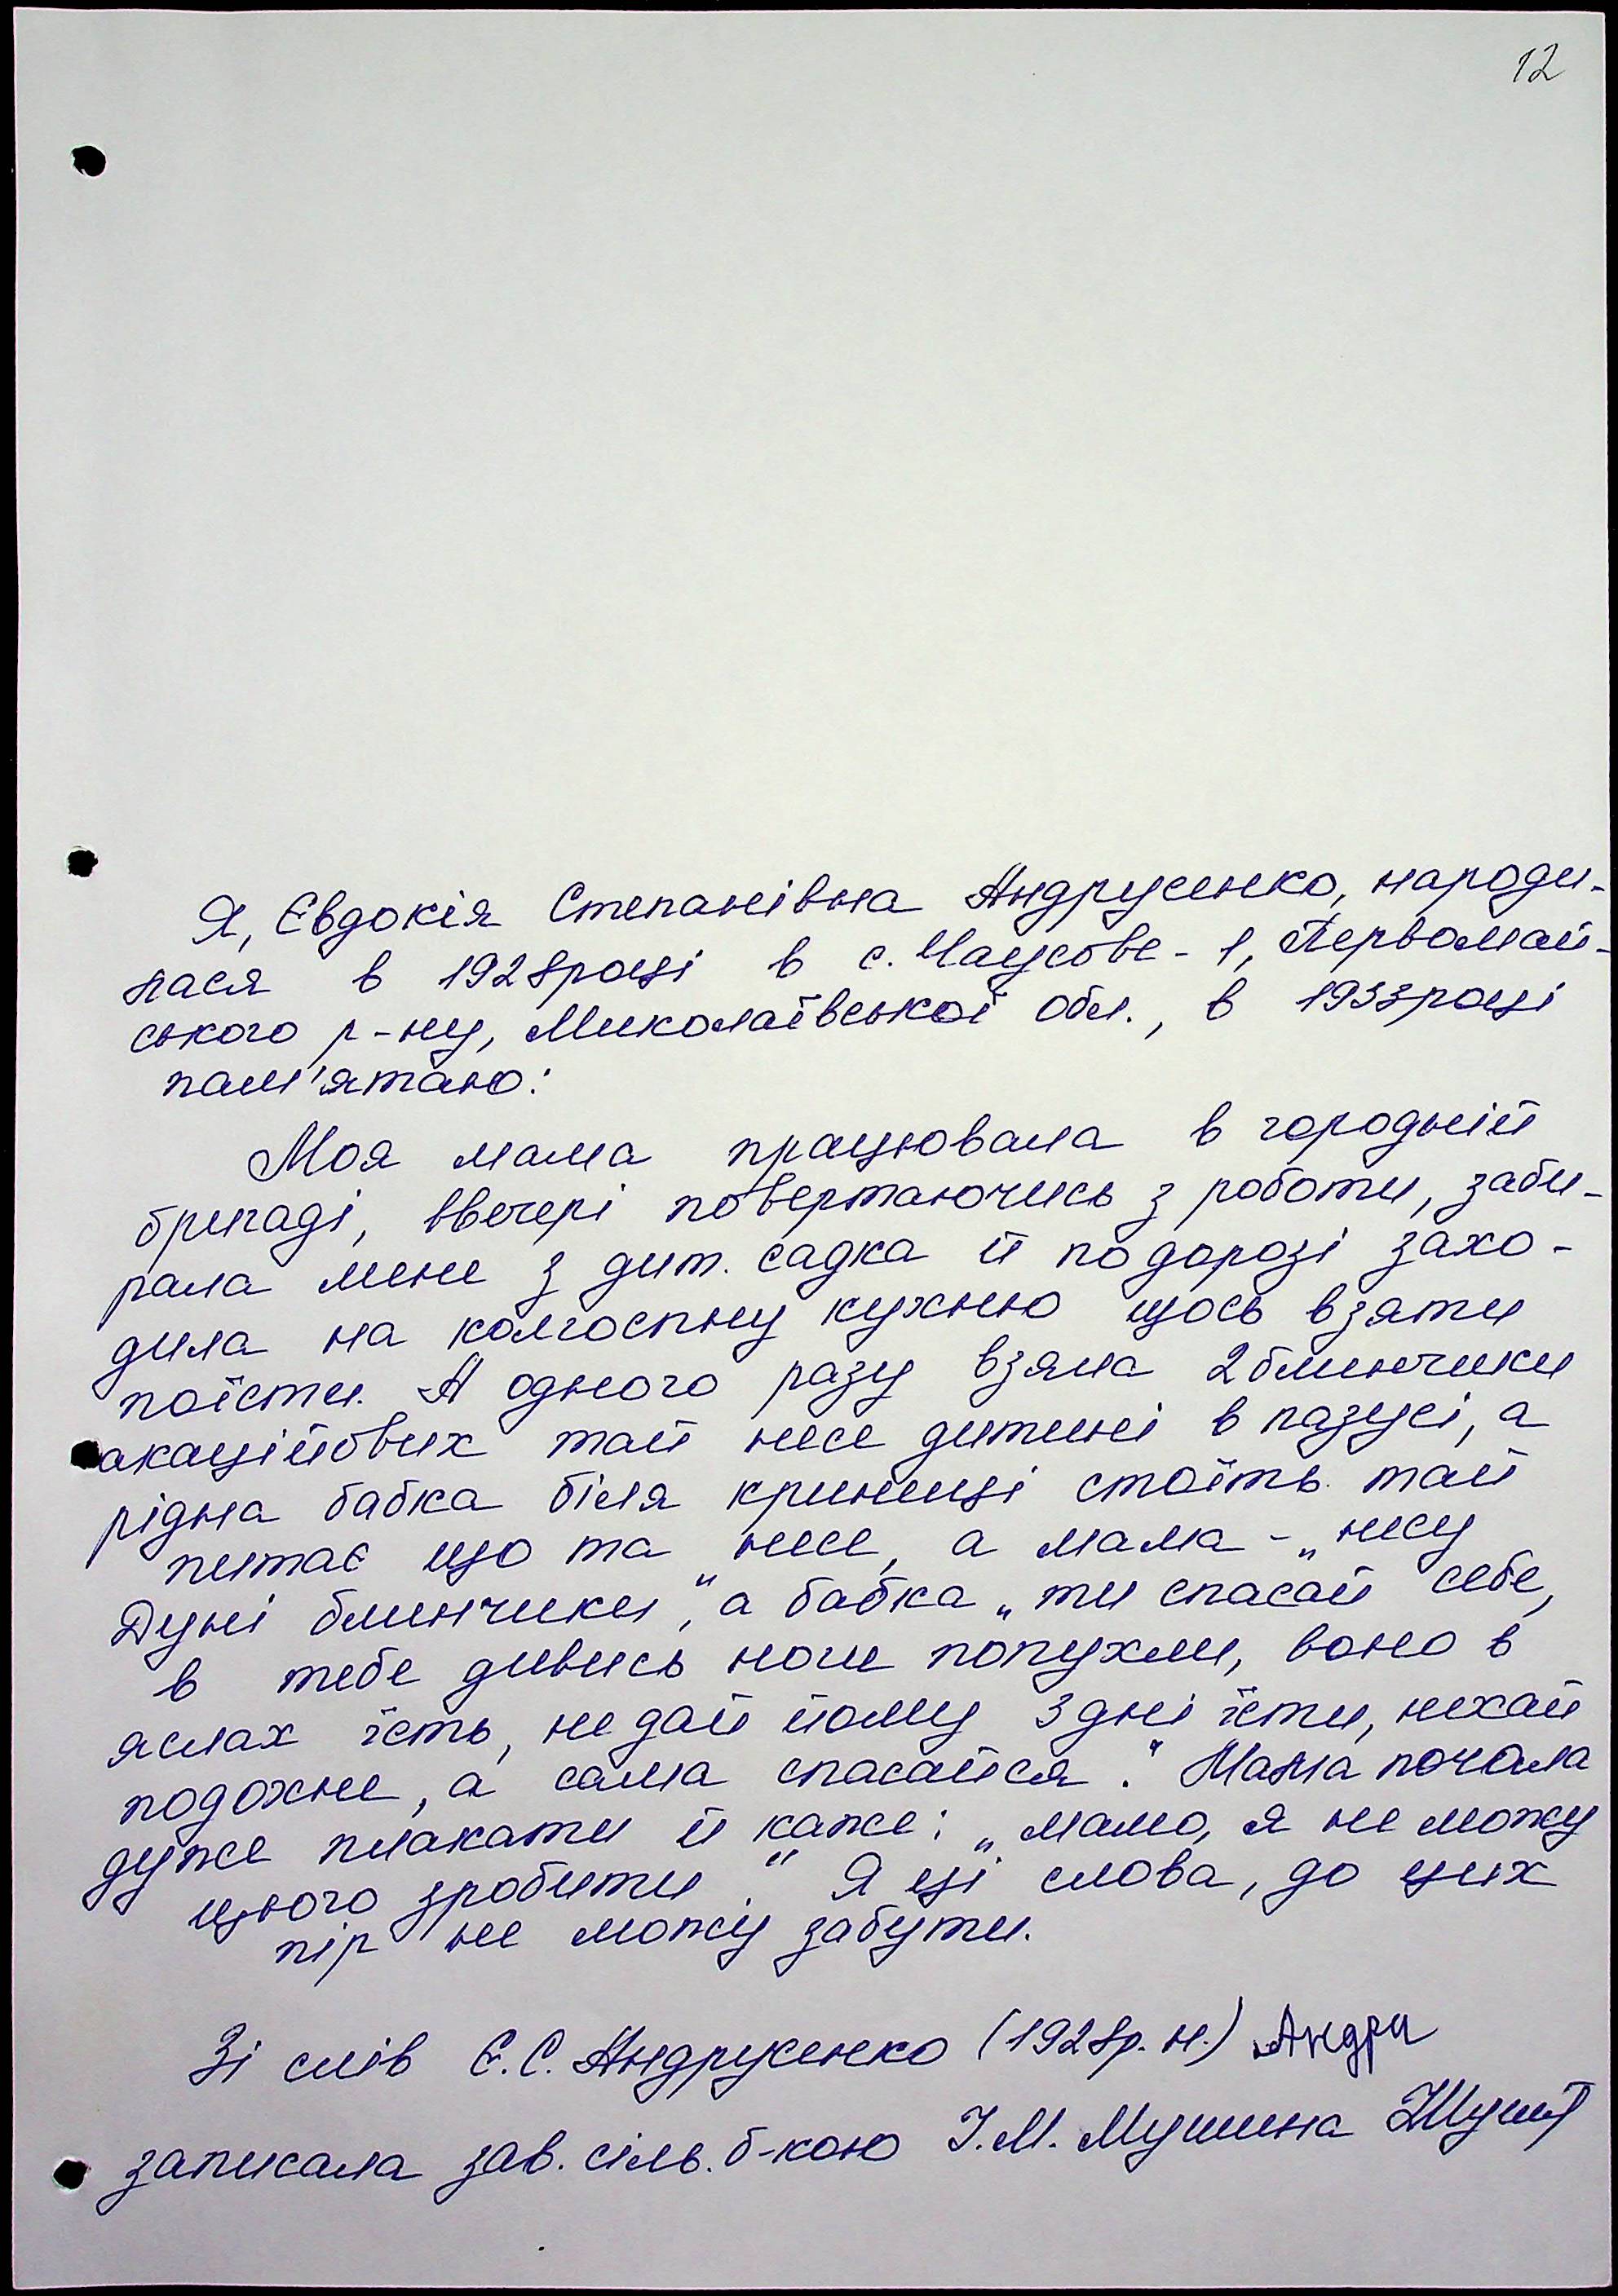 12
Я, Євдокія Степанівна Андрусенко, народи-
лася в 1928році в с. Чаусове-1, Первомай-
ського р-ну, Миколаївської обл., в 1933році
пам'ятаю:
Моя мама працювала в городній
бригаді, ввечері повертаючись з роботи, заби-
рала мене з дит. садка й по дорозі захо-
дила на колгоспну кухню щось взяти
поїсти. А одного разу взяла 2 блинчики
акаційових тай несе дитині в пазусі, а
рідна бабка біля криниці стоїть тай
питає що та несе, а мама - „несу
Дуні блинчики", а бабка „ти спасай себе,
в тебе дивись ноги попухли, воно в
яслах їсть, не дай йому 3 дні їсти, нехай
подохне, а сама спасайся". Мама почала
дуже плакати й каже: „мамо, я не можу
цього зробити". Я ці слова, до цих
пір не можу забути.
Зі слів Є.С. Андрусенко (1928р.н.) Андру
записала зав. сіль. б-кою І.М. Мушина